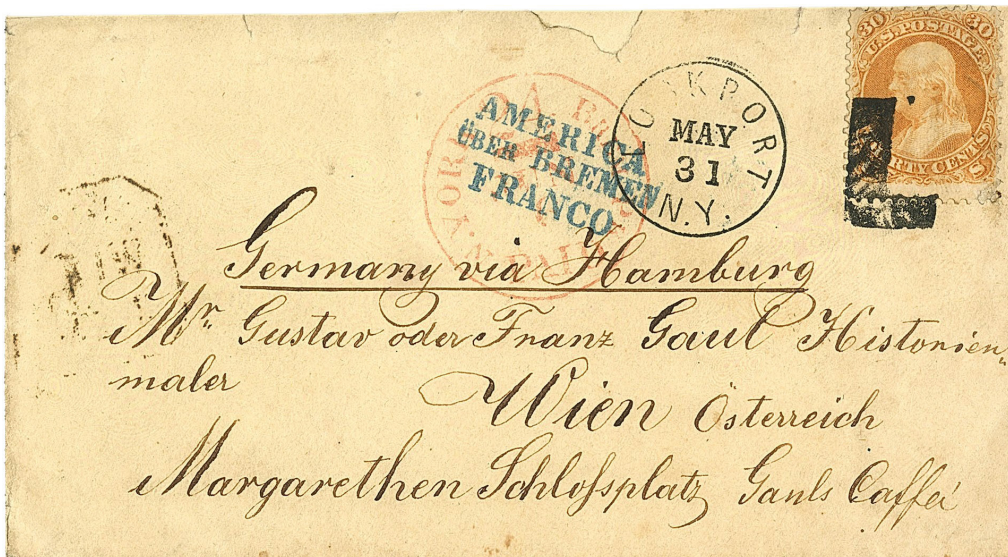 30 30
U.S. POSTAGE
CENTS
LOCKPORT
MAY
31
N.Y.
AMERICA
ÜBER BREMEN
FRANCO
PAID
Germany via Hamburg
Mr. Gustav oder Franz Gaul Historien-
maler
Wien Österreich
Margarethen Schloſsplatz Gauls Caffé